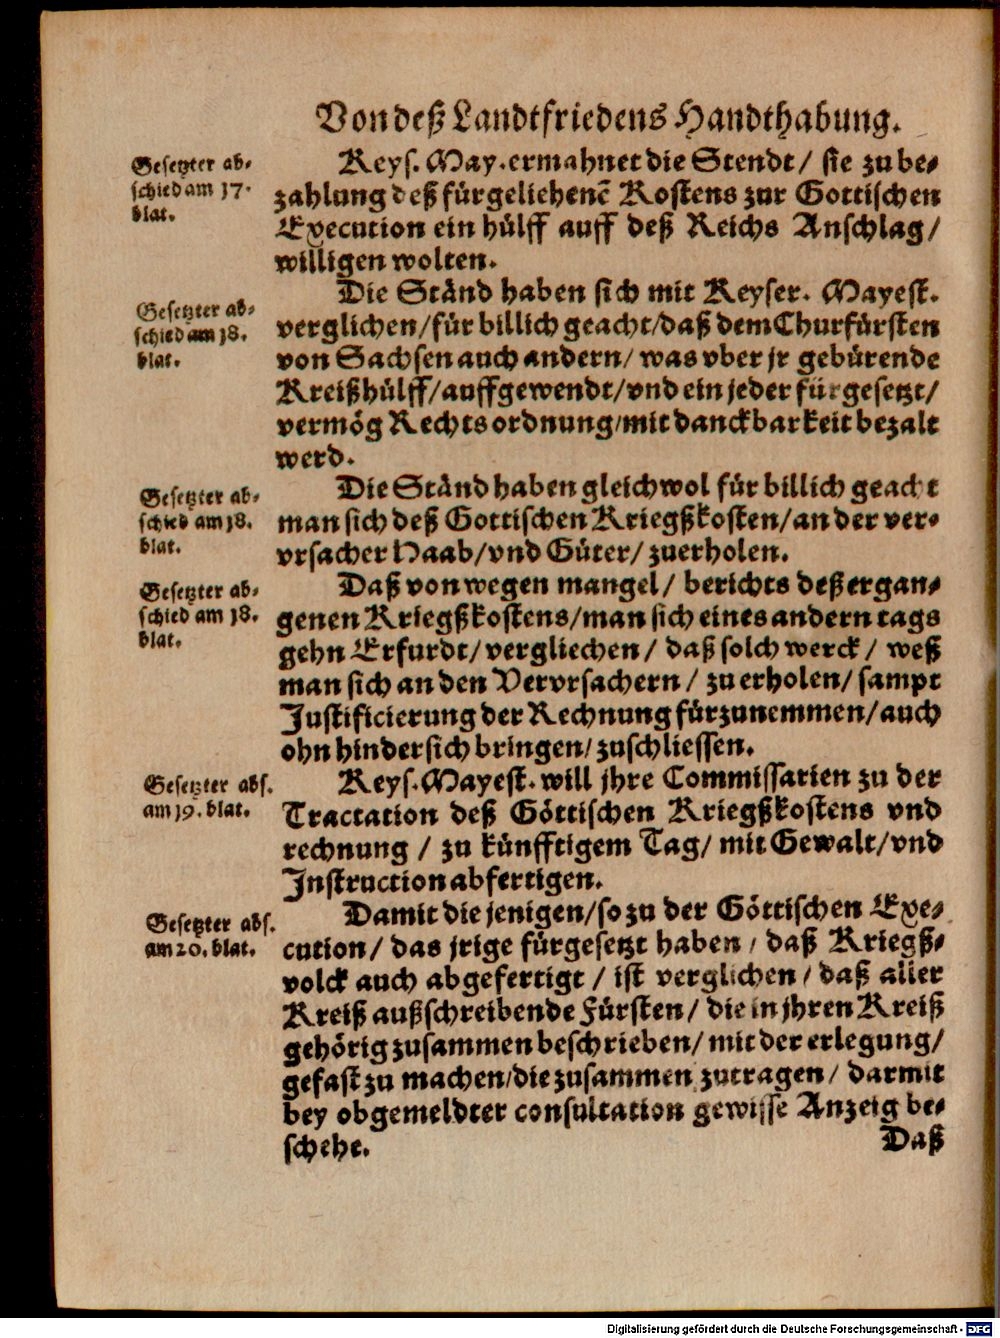 Von deß Landtfriedens Handthabung.
Gesetzter ab-
schied am 17.
blat.
Keys. May. ermahnet die Stendt/ sie zu be-
zahlung deß fürgeliehenẽ Kostens zur Gottischen
Execution ein hülff auff deß Reichs Anschlag/
willigen wolten.
Gesetzter ab-
schied am 18.
blat.
Die Ständ haben sich mit Keyser. Mayest.
verglichen/für billich geacht/daß dem Churfürsten
von Sachsen auch andern/ was vber jr gebürende
Kreißhülff/auffgewendt/vnd ein jeder fürgesetzt/
vermög Rechts ordnung/mit danckbarkeit bezalt
werd.
Gesetzter ab-
schied am 18.
blat.
Die Ständ haben gleichwol für billich geacht
man sich deß Gottischen Kriegßkosten/an der ver-
vrsacher Haab/vnd Güter/ zuerholen.
Gesetzter ab-
schied am 18.
blat.
Daß von wegen mangel/ berichts deß ergan-
genen Kriegßkostens/man sich eines andern tags
gehn Erfurdt/vergliechen/ daß solch werck/ weß
man sich an den Vervrsachern/ zu erholen/ sampt
Justificierung der Rechnung fürzunemmen/auch
ohn hindersich bringen/zuschliessen.
Gesetzter abs.
am 19. blat.
Keys. Mayest. will jhre Commissarien zu der
Tractation deß Göttischen Kriegßkostens vnd
rechnung / zu künfftigem Tag/ mit Gewalt/vnd
Instruction abfertigen.
Gesetzter abs.
am 20. blat.
Damit die jenigen/so zu der Göttischen Exe-
cution/ das jrige fürgesetzt haben / daß Kriegß-
volck auch abgefertigt / ist verglichen/ daß aller
Kreiß außschreibende Fürsten/ die in jhren Kreiß
gehörig zusammen beschrieben/ mit der erlegung/
gefast zu machen/die zusammen zutragen/ darmit
bey obgemeldter consultation gewisse Anzeig be-
schehe.
Daß
Digitalisierung gefördert durch die Deutsche Forschungsgemeinschaft - DFG